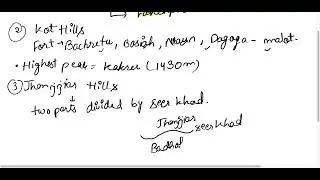 ② Kot Hills
Fort → Bachretu, Basish, Dagoga - malot.
• Highest peak = Kakrer (1430m)
③ Jhanjjiar Hills
two parts divided by Seer Khad.
Jhanjjiar
Seer Khad
Badhol